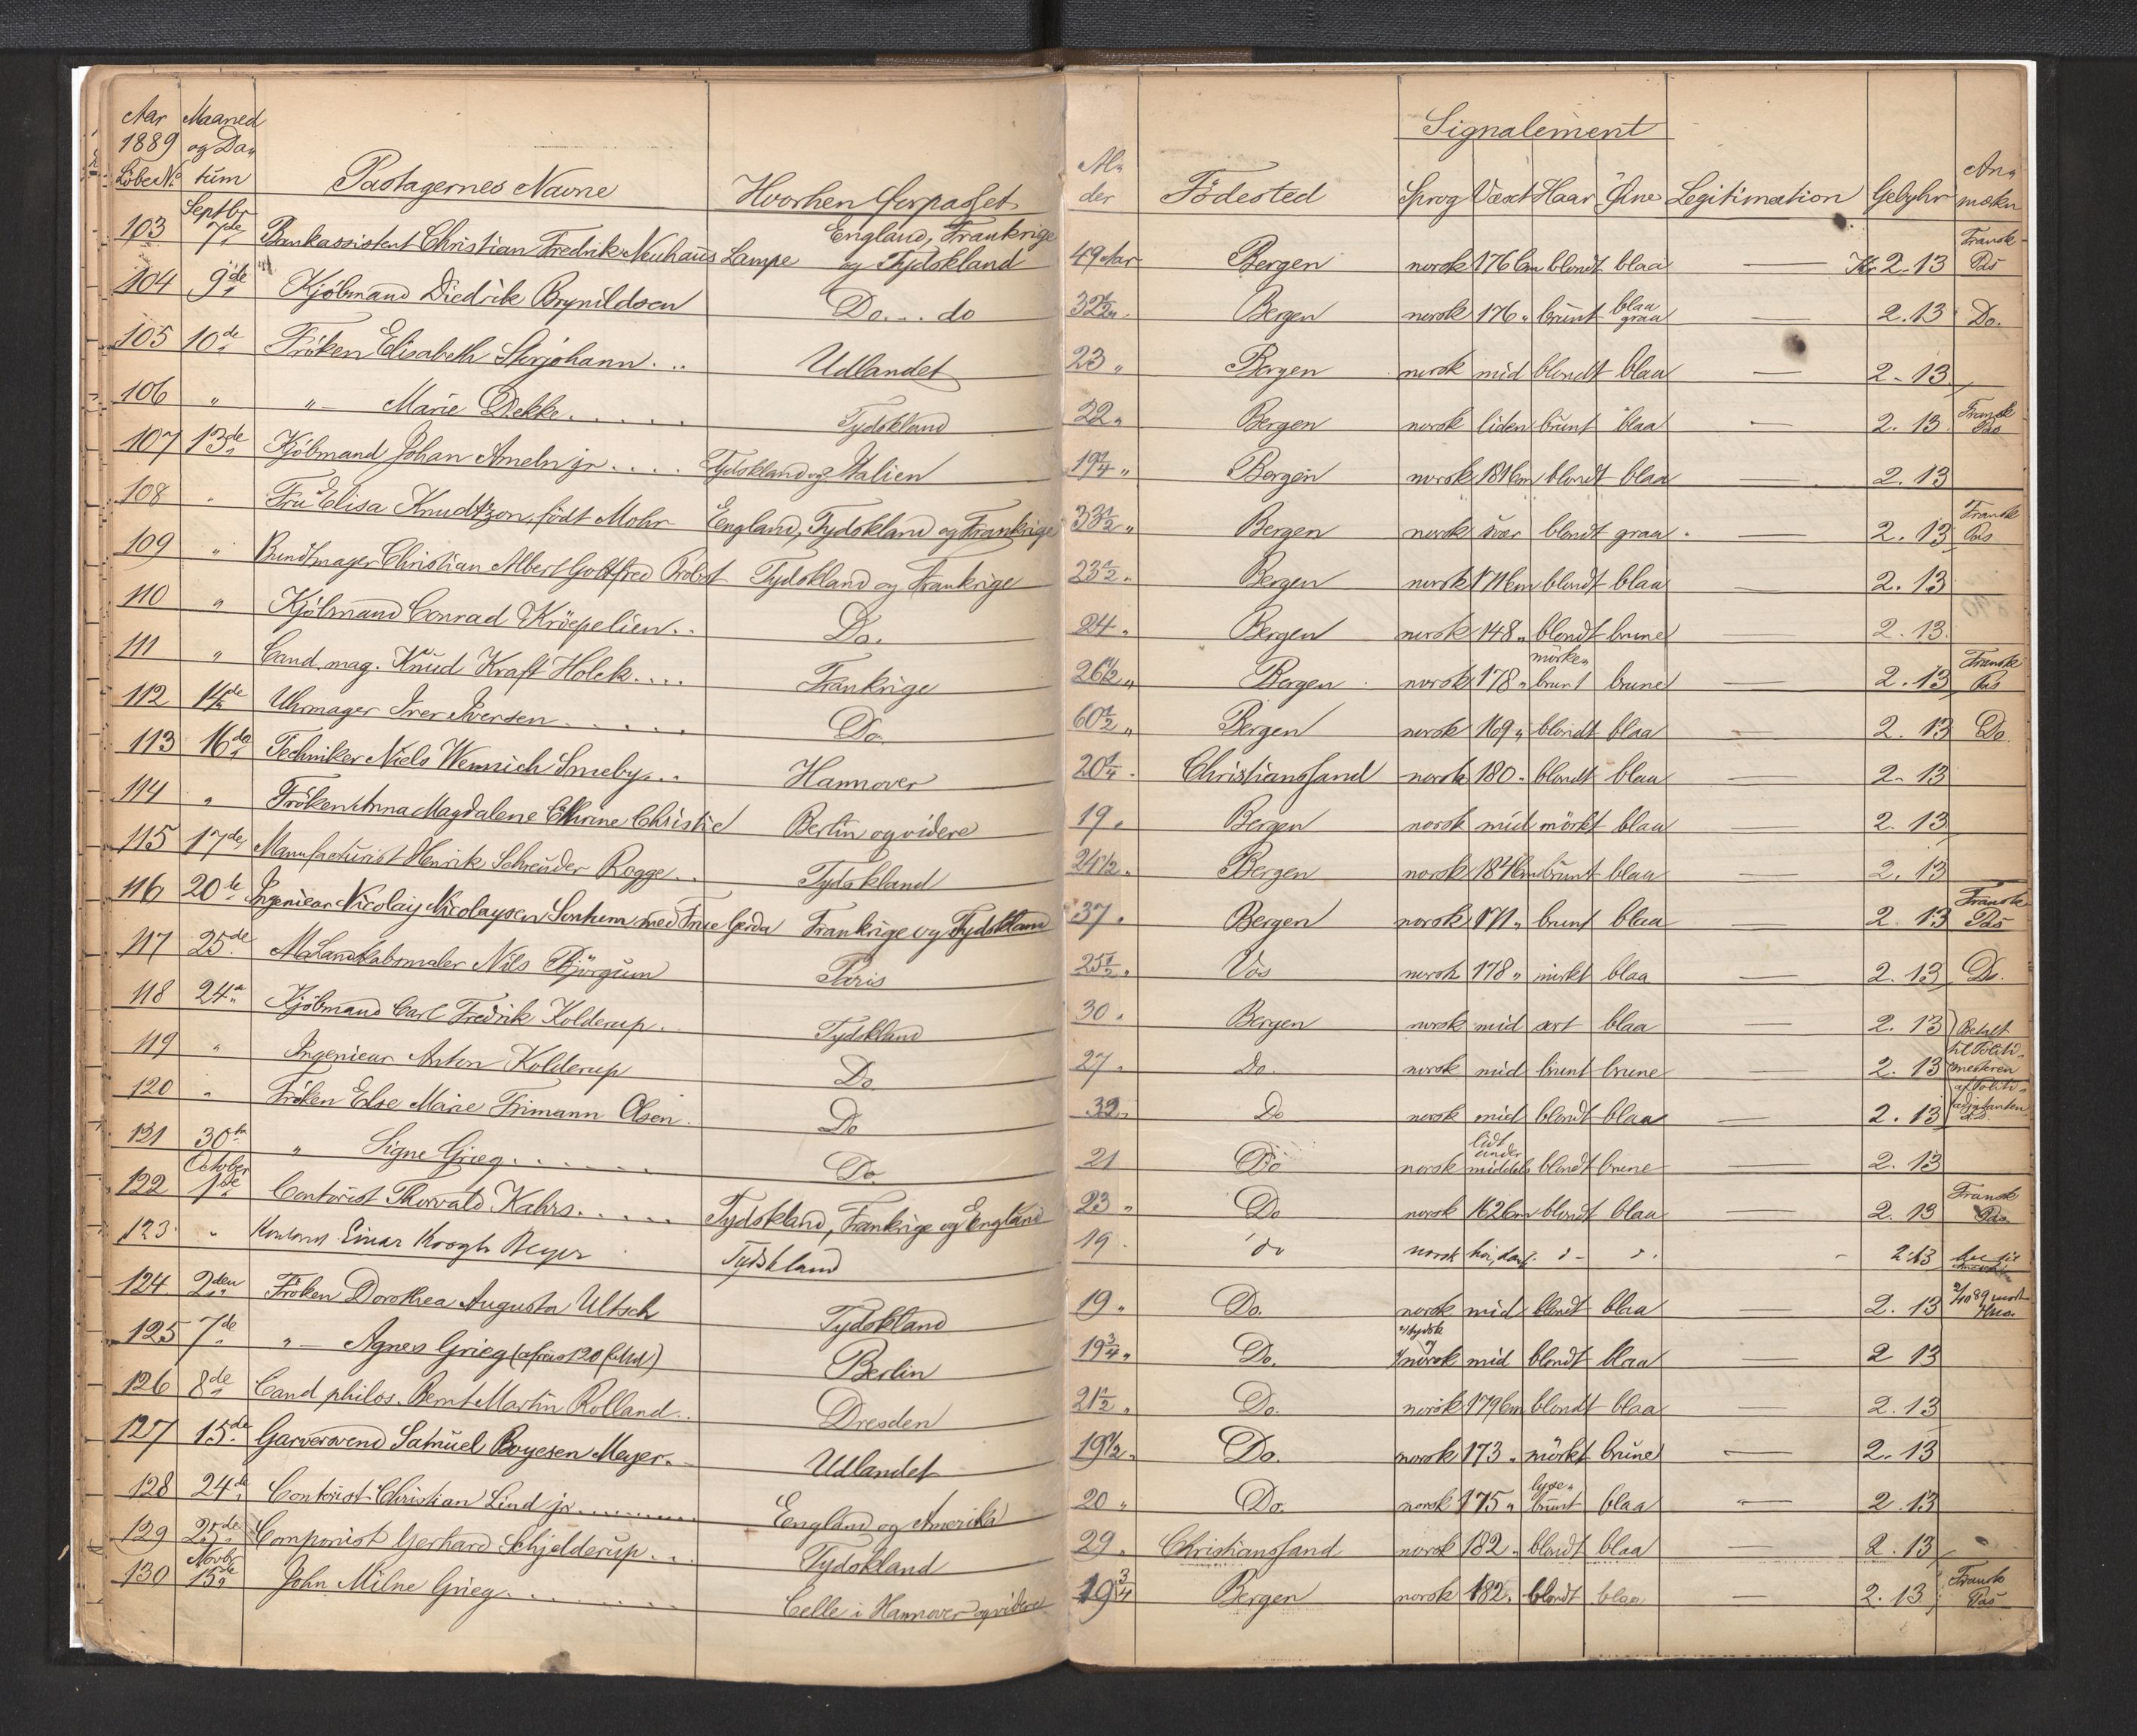 Aar 1889 Löbe No Maaned og Datum Pastagernes Navne Hvorhen forpasset Alder Födested Signalement Sprog Væxt Haar Öine Legitimation Gebyhr Anmærkn
103 Septbr 7de Bankassistent Christian Fredrik Neuhaus Lampe England, Frankrige og Tydskland 49 Aar Bergen norsk 176 Cm blondt blaa — Kr. 2.13 Fransk Pas
104 9de Kjöbmand Diedrik Brynildsen Do... do 32 1/2 " Bergen norsk 176 " brunt blaa graa — 2.13 Do.
105 10de Fröken Elisabeth Skrjohann... Udlandet 23 " Bergen norsk mid blondt blaa — 2.13
106 " " — Marie Dekke..... Tydskland 22 " Bergen norsk liden brunt blaa — 2.13 Fransk Pas
107 13de Kjöbmand Johan Ameln jr.... Tydskland og Italien 19 1/4 " Bergen norsk 181 Cm blondt blaa — 2.13
108 " Fru Elisa Knudtzon, födt Mohr England, Tydskland og Frankrige 33 1/2 " Bergen norsk svær blondt graa — 2.13 Fransk Pas
109 " Bundtmager Christian Albert Gottfred Probst Tydskland og Frankrige 23 1/2 " Bergen norsk 171 Cm blondt blaa — 2.13
110 " Kjöbmand Conrad Kröepelien.. Do. 24 " Bergen norsk 148 " blondt brune — 2.13
111 " Cand. mag. Knud Kraft Holck.... Frankrige 26 1/2 " Bergen norsk 178 " mörkebrunt brune — 2.13 Fransk Pas
112 14de Uhrmager Iver Iversen..... Do. 60 1/2 " Bergen norsk 169 " blondt blaa — 2.13 Do.
113 16de Techniker Niels Wennich Smeby... Hannover 20 1/4 " Christianssand norsk 180 " blondt blaa — 2.13
114 " Fröken Anna Magdalene Cathrine Christie Berlin og videre 19 " Bergen norsk mid mörkt blaa — 2.13
115 17de Manufacturist Henrik Schreuder Rogge.. Tydskland 24 1/2 " Bergen norsk 184 Cm brunt blaa — 2.13
116 20de Ingenieur Nicolaij Nicolaysen Sontum med Frue Gerda Frankrige og Tydskland 37 " Bergen norsk 171 " brunt blaa — 2.13 Fransk Pas
117 25de Landskabsmaler Nils Björgum Paris 25 1/2 " Vos norsk 178 " mörkt blaa — 2.13 Do.
118 24de Kjöbmand Carl Fredrik Kolderup.. Tydskland 30 " Bergen norsk mid sort blaa — 2.13 Betalt
119 " Ingenieur Anton Kolderup Do 27 " Do. norsk mid brunt brune 2.13 til Politimesteren
120 " Fröken Else Marie Frimann Olsen. Do 32 " Do norsk mid blondt blaa — 2.13 af Politiadjutanten
121 30te " Signe Grieg....... Do. 21 Do norsk lidt under middels blondt brune — 2.13
122 October 1de Contorist Thorvald Kahrs..... Tydskland, Frankrige og England 23 " Do norsk 162 Cm blondt blaa — 2.13 Fransk Pas
123 " Kontorist Einar Krogh Beyer Tydskland 19 " do norsk höi, 2.13
124 2den Fröken Dorothea Augusta Ultsch Tydskland 19 " Do. norsk mid blondt blaa — 2.13
125 7de " — Agnes Grieg Berlin 19 3/4 " Do. tydsk og norsk mid blondt blaa — 2 13
126 8de Cand philos. Bernt Martin Rolland.. Dresden 21 1/2 " Do. norsk 179 Cm blondt blaa — 2.13
127 15de Garversvend Samuel Boyesen Meyer. Udlandet 19 1/2 " Do. norsk 173 " mörkt brune — 2.13
128 24de Contorist Christian Lind jr......... England og Amerika 20 " Do. norsk 175 " lysebrunt blaa — 2.13
129 25de Componist Gerhard Schjelderup... Tydskland 29 " Christianssand norsk 182 " blondt blaa — 2.13
130 Novbr 15de John Milne Grieg........ Celle i Hannover og videre 19 3/4 Bergen norsk 182 " blondt blaa — 2.13 Fransk Pas